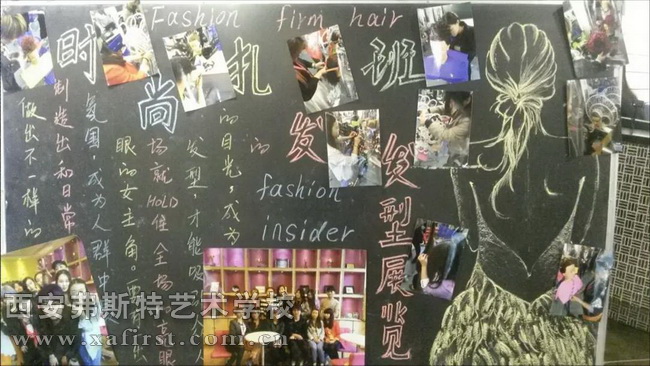 Fashion firm hair
时尚扎发班
的
fashion
insider
发型展览
做出不一样的
制造出和日常
氛围,成为人群中
眼的女主角。要
场就HOLD住全场
发型,才能吸 人
的目光,成为
西安邦斯特艺术学校
www.xafirst.com.cn